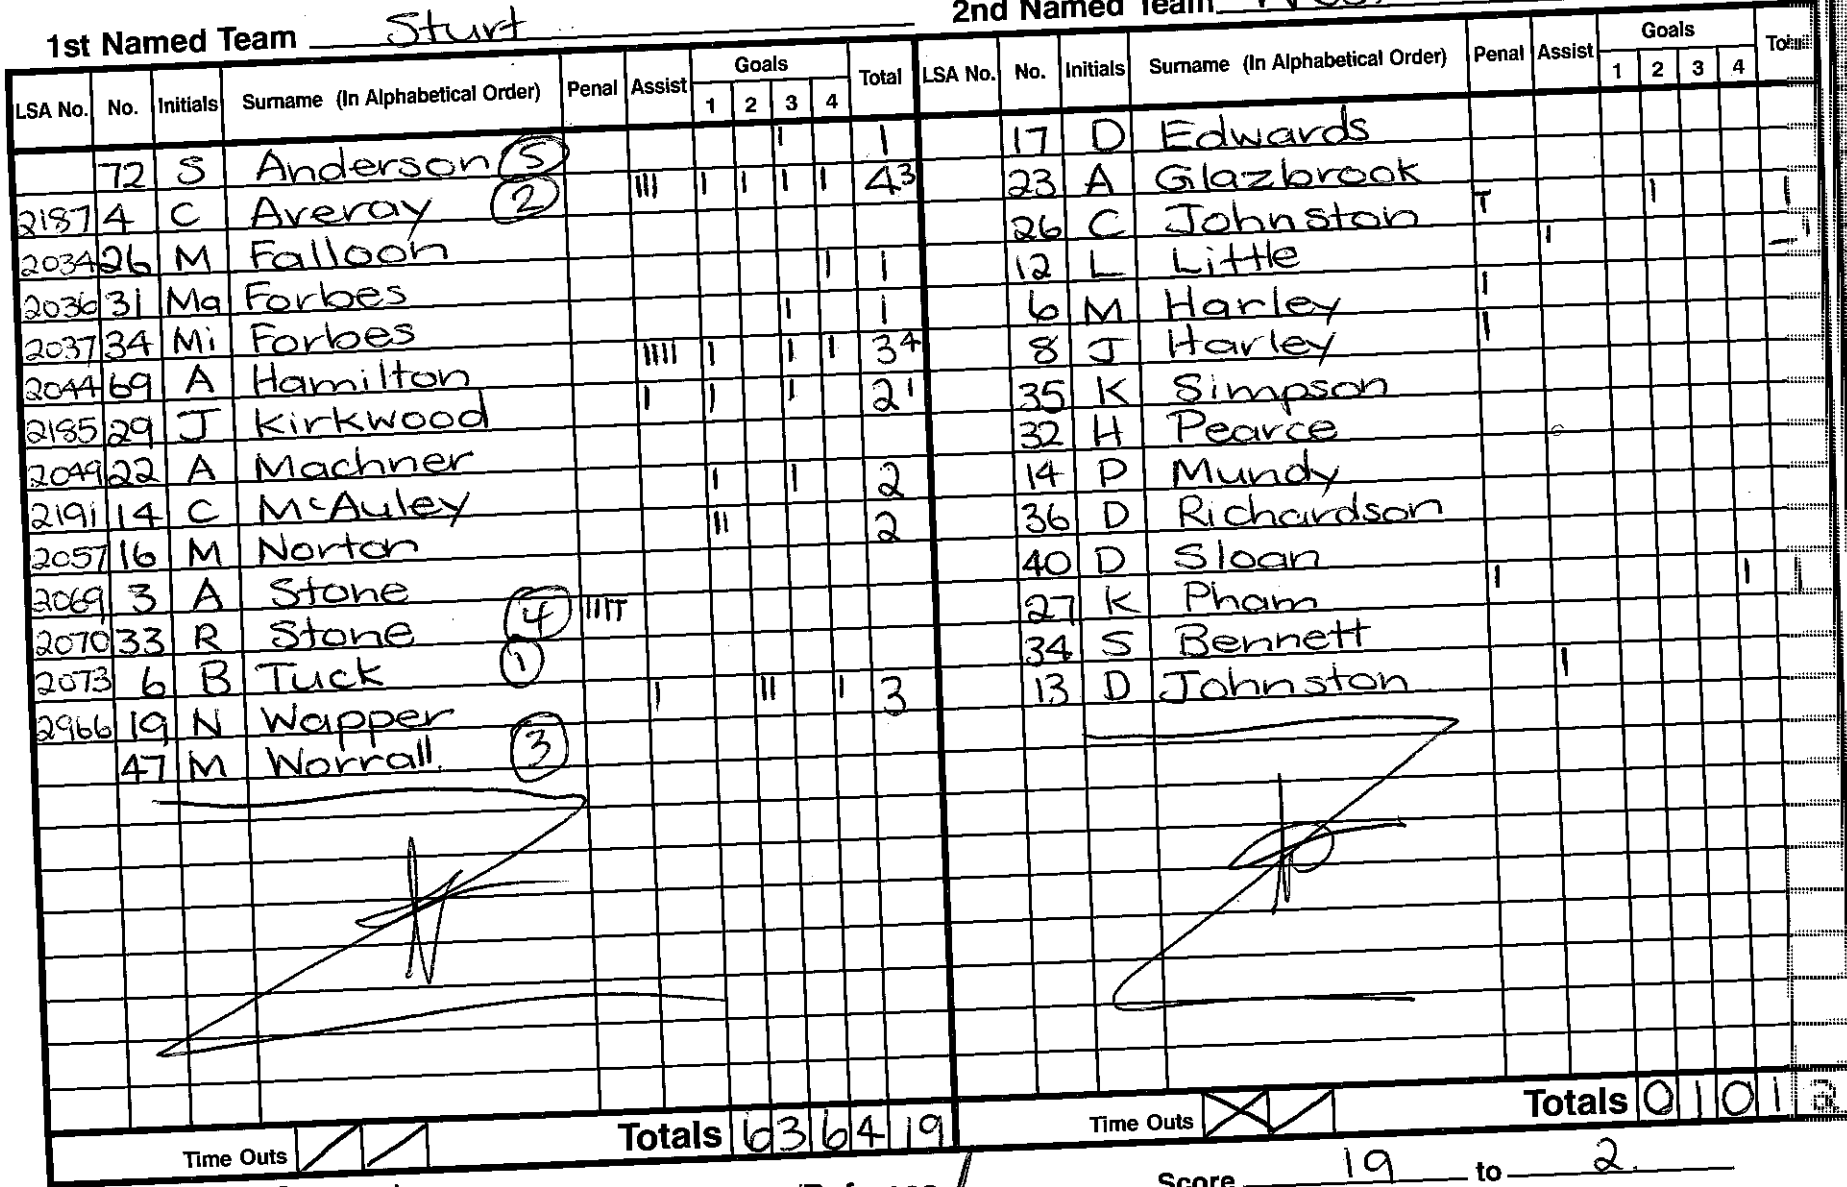 1st Named Team Sturt
2nd Named Team
LSA No. No. Initials Surname (In Alphabetical Order) Penal Assist Goals 1 2 3 4 Total
72 S Anderson 5 I I
2187 4 C Averay 2 III I I I I 4 3
2034 26 M Falloon
2036 31 Ma Forbes I I
2037 34 Mi Forbes I I
2044 69 A Hamilton IIII I I I 3 4
2185 29 J Kirkwood I I I 2 1
2049 22 A Machner
2191 14 C McAuley I I 2
2057 16 M Norton II 2
2069 3 A Stone
2070 33 R Stone 4 IIIT
2073 6 B Tuck 1
2966 19 N Wapper I II I 3
47 M Worrall. 3
Time Outs Totals 6 3 6 4 19
LSA No. No. Initials Surname (In Alphabetical Order) Penal Assist Goals 1 2 3 4
17 D Edwards
23 A Glazbrook
26 C Johnston T I I
12 L Little I
6 M Harley I
8 J Harley I
35 K Simpson
32 H Pearce
14 P Mundy
36 D Richardson
40 D Sloan
27 K Pham I I I
34 S Bennett
13 D Johnston I
Time Outs Totals 0 1 0 1 2
Score 19 to 2.